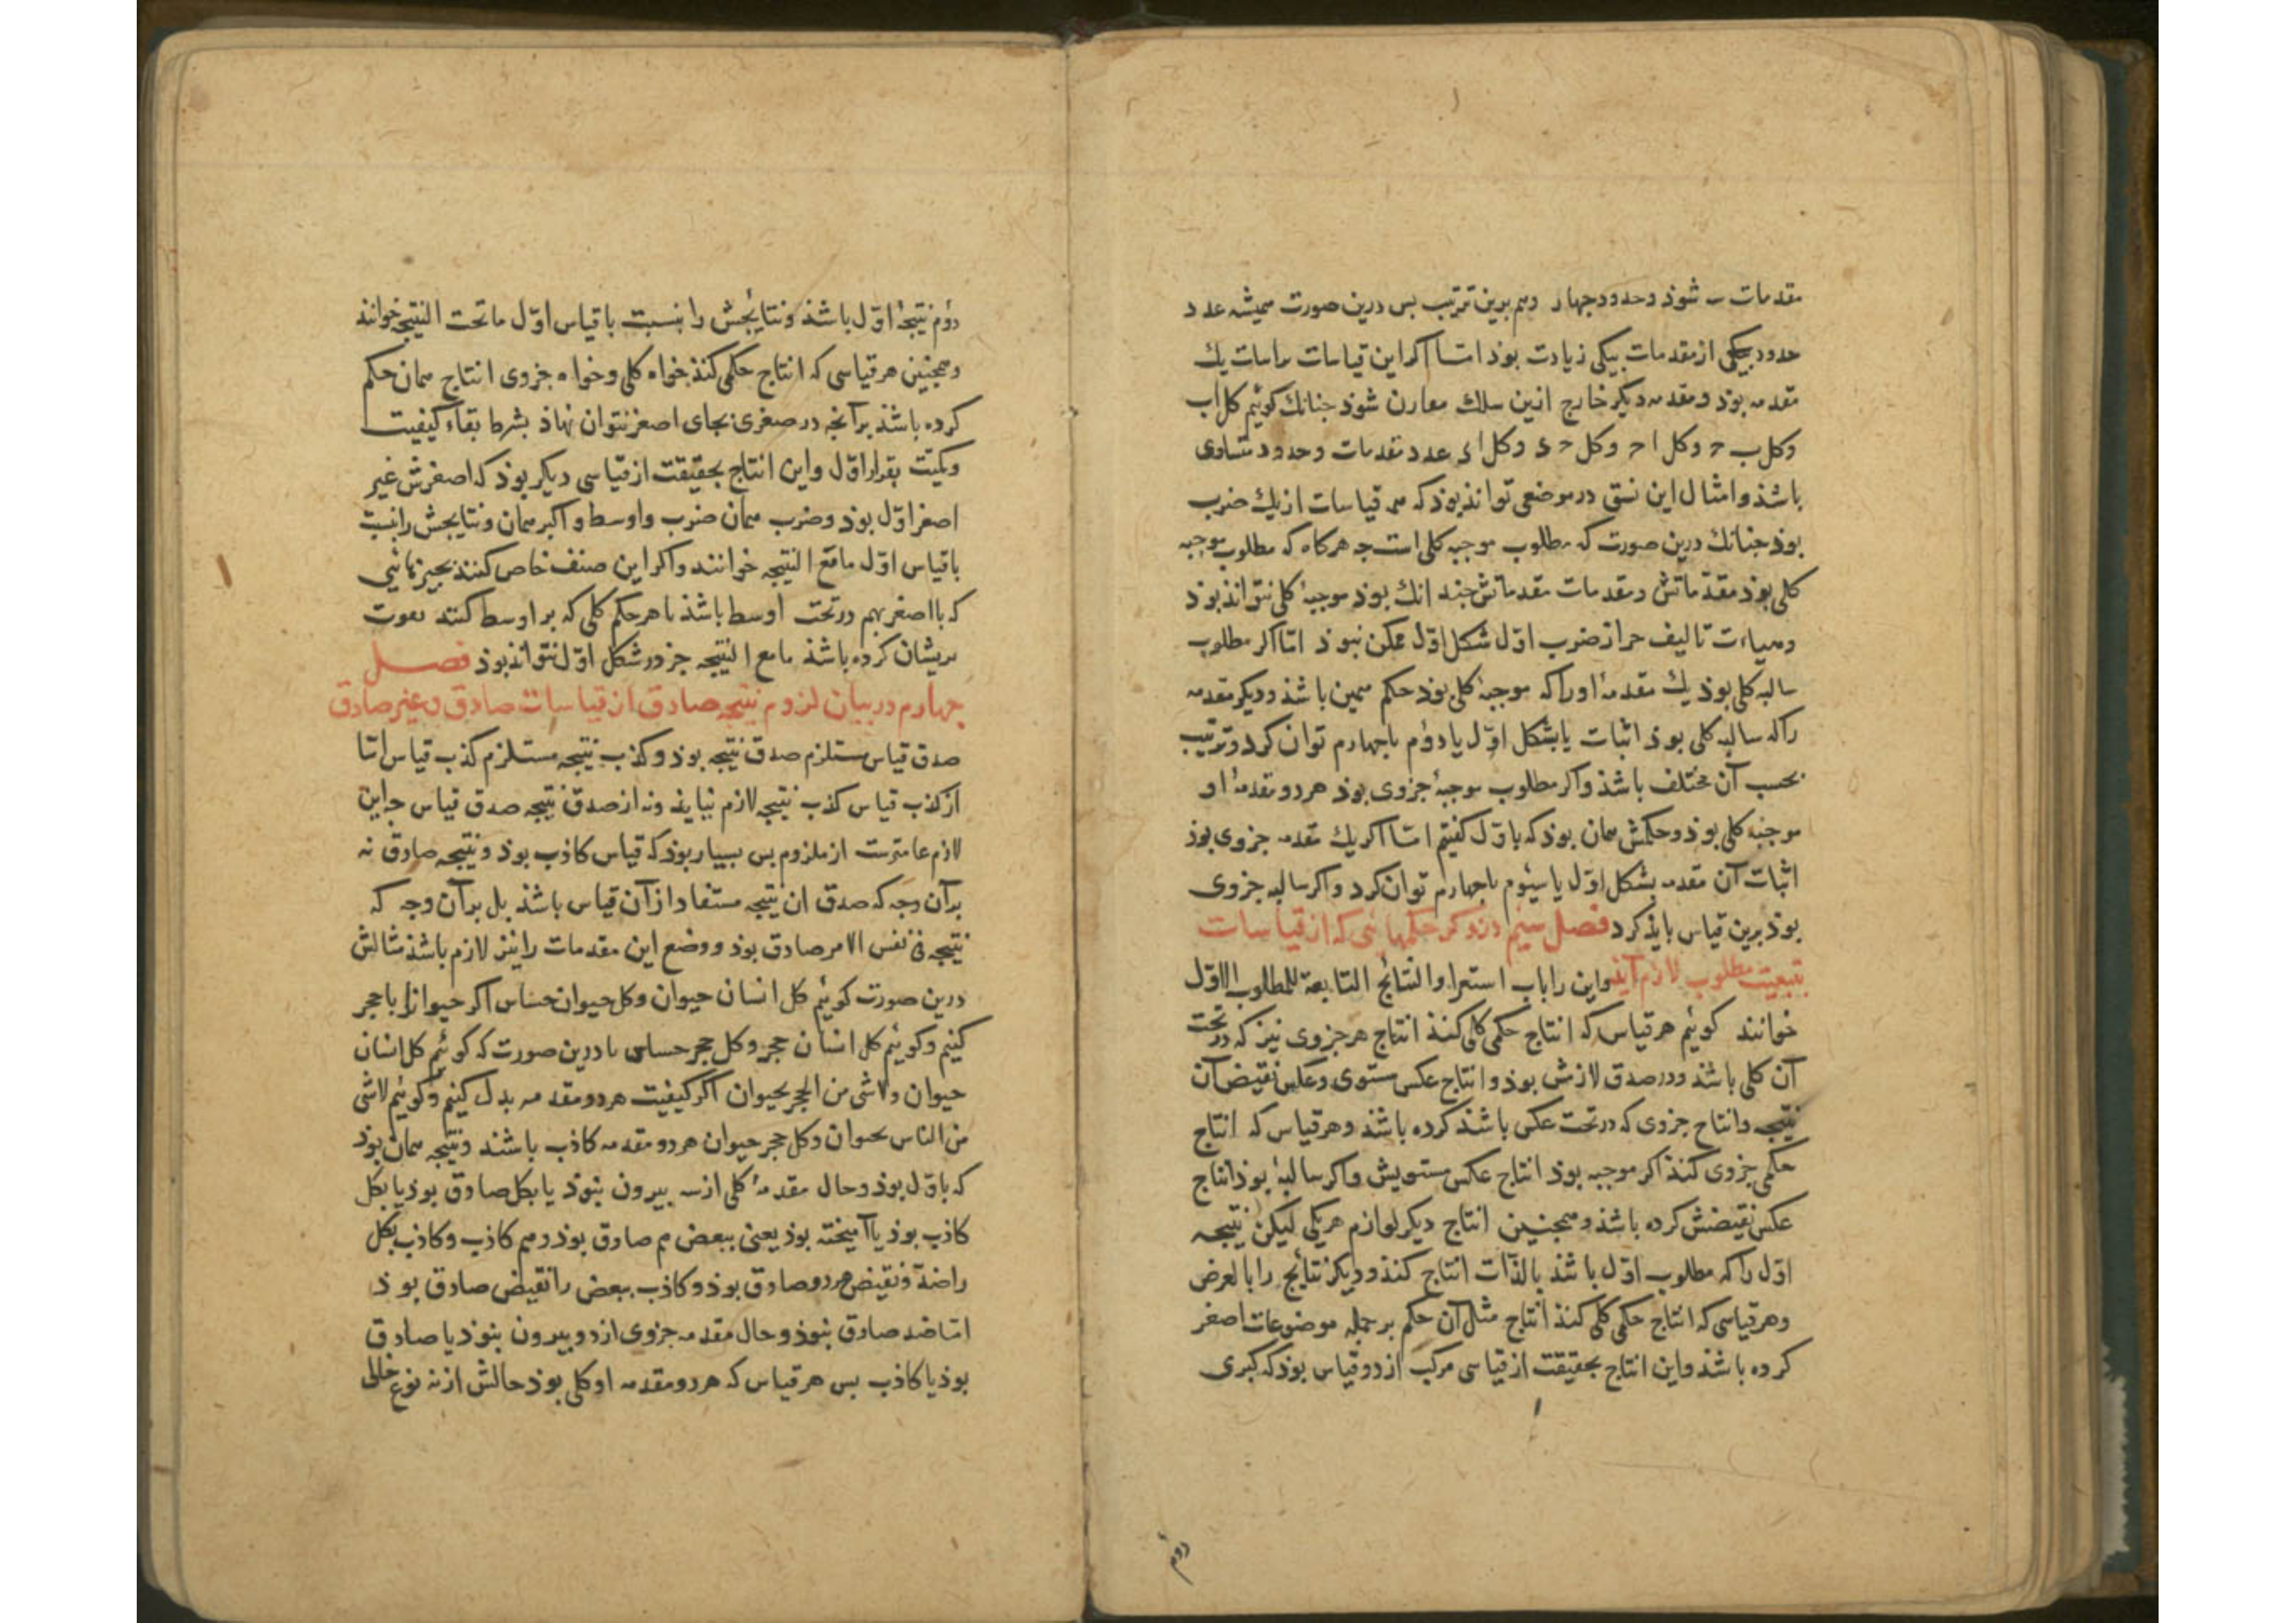 مقدمات ـه شوذ وحدود جهار وهم برين ترتيب بس درين صورت هميشه عدد
حدود بيكى از مقدمات بيكى زيادت بوذ امّا اكر اين قياسات يك
مقدمه بوذ ومقدمه ديكر خارج ازين سلك مقارن شوذ جنانك كوئيم كل اب
وكل ب ح وكل ا ح وكل ح ى وكل اى عدد مقدمات وحدود متساوى
باشذ وامثال اين نسق در موضعى تواند بوذ كه همه قياسات از يك ضرب
بوذ جنانك درين صورت كه مطلوب موجبه كلى است جه هركاه كه مطلوب موجبه
كلى بوذ مقدماتش ومقدمات مقدماتش جندانك بوذ موجبۀ كلى نتواند بوذ
وهيات تاليف جز از ضرب اوّل شكل اوّل ممكن نبوذ امّا اكر مطلوب
سالبه كلى بوذ يك مقدمۀ اورا كه موجبۀ كلى بوذ حكم همين باشذ وديكر مقدمه
راكه سالبه كلى بوذ اثبات يا بشكل اوّل يا دوم يا جهارم توان كرد وترتيب
بحسب آن مختلف باشذ واكر مطلوب موجبۀ جزوى بوذ هر دو مقدمۀ او
موجبه كلى بوذ وحكمش همان بوذ كه باوّل كفتيم امّا اكر يك مقدمه جزوى بوذ
اثبات آن مقدمه بشكل اوّل يا سيوم يا جهارم توان كرد واكر سالبه جزوى
بوذ برين قياس بايذ كرد فصل سيم در ذكر حكمهايى كه از قياسات
بتبعيت مطلوب لازم آيذ واين را باب استقرا والنتائج التابعة للمطلوب الاوّل
خوانند كوئيم هر قياس كه انتاج حكمى كلى كنذ انتاج هر جزوى نيز كه در تحت
آن كلى باشذ ودر صدق لازمش بوذ وانتاج عكس مستوى وعكس نقيض آن
نتيجه وانتاج جزوى كه در تحت عكس باشذ كرده باشذ وهر قياس كه انتاج
حكمى جزوى كنذ اكر موجبه بوذ انتاج عكس مستويش واكر سالبۀ بوذ انتاج
عكس نقيضش كرده باشذ وهمجنين انتاج ديكر لوازم هريكى ليكن نتيجه
اوّل را كه مطلوب اوّل باشذ بالذات انتاج كنذ وديكر نتائج را بالعرض
وهر قياسى كه انتاج حكمى كلى كنذ انتاج مثل آن حكم بر جمله موضوعات اصغر
كرده باشذ واين انتاج بحقيقت از قياسى مركب از دو قياس بوذ كه كبرى
دوم
دوم نتيجۀ اوّل باشذ ونتايجش را بنسبت با قياس اوّل ما تحت النتيجه خوانند
وهمجنين هر قياسى كه انتاج حكمى كنذ خواه كلى وخواه جزوى انتاج همان حكم
كرده باشذ بر آنجه در صغرى بجاى اصغر نتوان نهاذ بشرط بقاء كيفيت
وكميت بقرار اوّل واين انتاج بحقيقت از قياسى ديكر بوذ كه اصغرش غير
اصغر اوّل بوذ وضرب همان ضرب واوسط واكبر همان ونتايجش را بنسبت
با قياس اوّل ما مع النتيجه خوانند واكر اين صنف خاص كنند بجيزهائى
كه با اصغر بهم در تحت اوسط باشذ تا هر حكم كلى كه بر اوسط كنند
بريشان كرده باشذ ما مع النتيجه جز در شكل اوّل نتواند بوذ فصل
جهارم در بيان لزوم نتيجه صادق از قياسات صادق وغير صادق
صدق قياس مستلزم صدق نتيجه بوذ وكذب نتيجه مستلزم كذب قياس امّا
از كذب قياس كذب نتيجه لازم نيايذ ونه از صدق نتيجه صدق قياس جه اين
لازم عام‌ترست از ملزوم بس بسيار بوذ كه قياس كاذب بوذ ونتيجه صادق نه
بر آن وجه كه صدق ان نتيجه مستفاد از آن قياس باشذ بل بر آن وجه كه
نتيجه فى نفس الامر صادق بوذ ووضع اين مقدمات را نيز لازم باشذ مثالش
درين صورت كوئيم كل انسان حيوان وكل حيوان حساس اكر حيوانرا با حجر
كنيم وكوئيم كل انسان حجر وكل حجر حساس يا درين صورت كه كوئيم كل انسان
حيوان ولاشى من الحجر بحيوان اكر كيفيت هر دو مقدمه بدل كنيم وكوئيم لاشى
من الناس بحيوان وكل حجر حيوان هر دو مقدمه كاذب باشند ونتيجه همان بوذ
كه باوّل بوذ وحال مقدمۀ كلى از سه بيرون نبوذ يا بكل صادق بوذ يا بكل
كاذب بوذ يا آميخته بوذ يعنى ببعض هم صادق بوذ وهم كاذب وكاذب بكل
را ضدّ ونقيض هر دو صادق بوذ وكاذب ببعض را نقيض صادق بوذ
امّا ضد صادق نبوذ وحال مقدمه جزوى از دو بيرون نبوذ يا صادق
بوذ يا كاذب بس هر قياس كه هر دو مقدمه او كلى بوذ حالش از نه نوع خالى